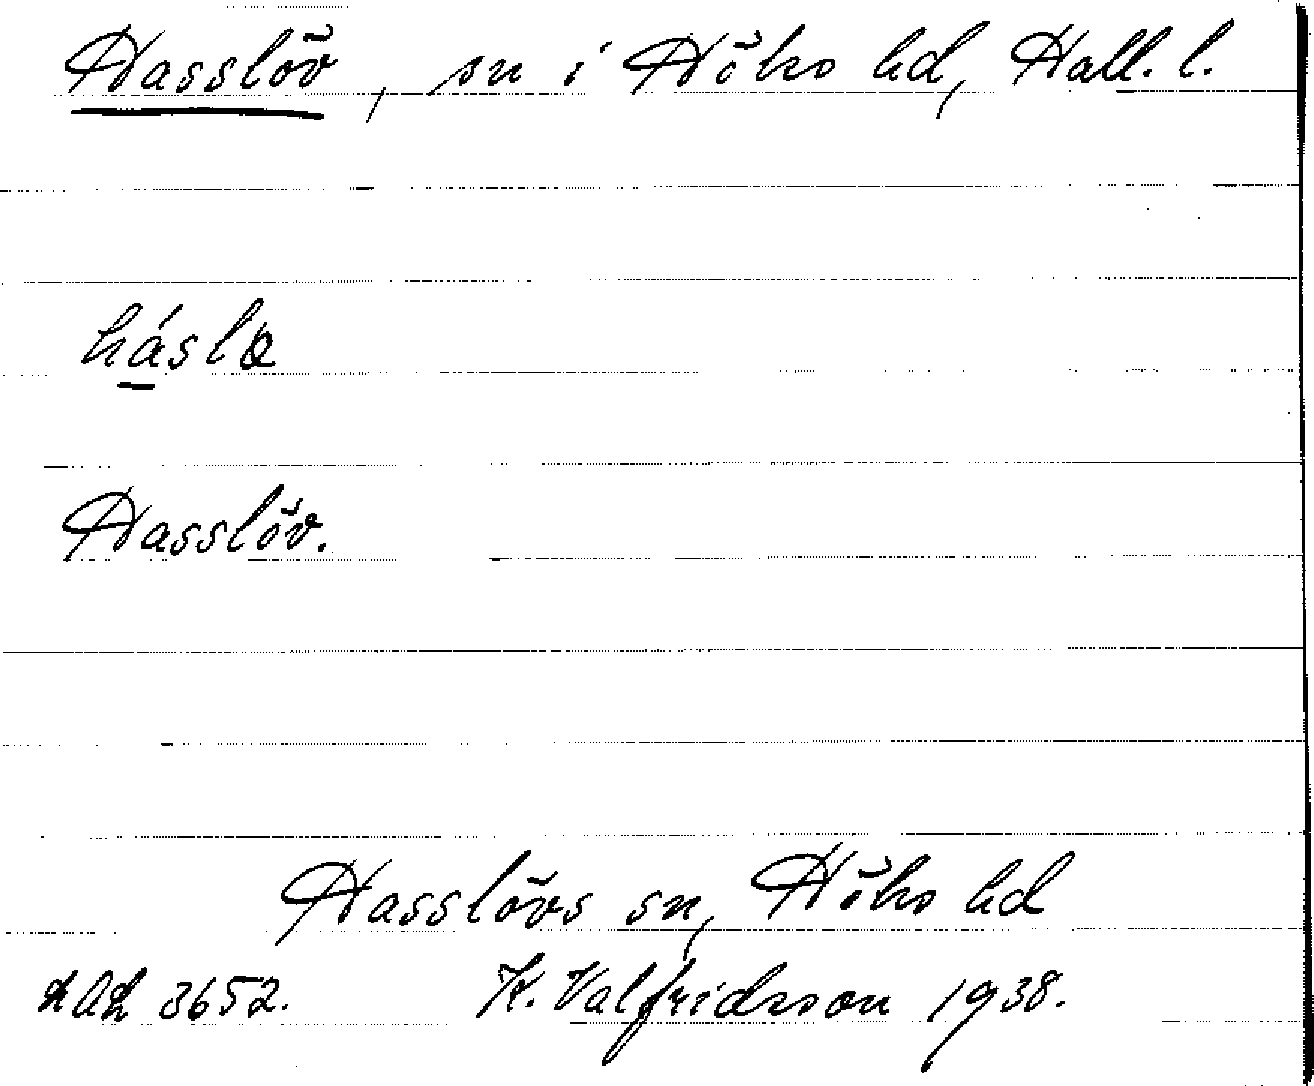 Hasslöv, sn i Höks hd, Hall. l.
hásla
Hasslöv.
Hasslövs sn, Höks hd
LAL 3652. K. Valfridsson 1938.